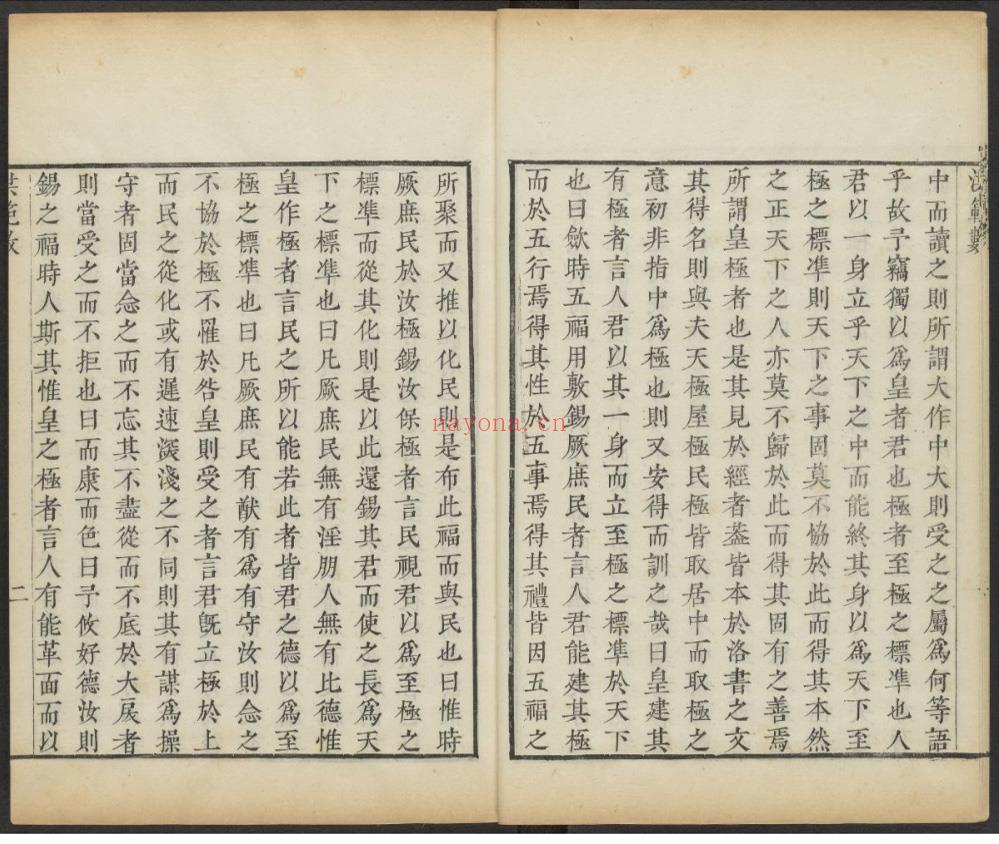 中而讀之則所謂大作中大則受之之屬爲何等語
乎故予竊獨以爲皇者君也極者至極之標凖也人
君以一身立乎天下之中而能終其身以爲天下至
極之標凖則天下之事固莫不協於此而得其本然
之正天下之人亦莫不歸於此而得其固有之善焉
所謂皇極者也是其見於經者葢皆本於洛書之文
其得名則與夫天極屋極民極皆取居中而取極之
意初非指中爲極也則又安得而訓之哉曰皇建其
有極者言人君以其一身而立至極之標凖於天下
也曰歛時五福用敷錫厥庶民者言人君能建其極
而於五行焉得其性於五事焉得其禮皆因五福之
所聚而又推以化民則是布此福而與民也曰惟時
厥庶民於汝極錫汝保極者言民視君以爲至極之
標凖而從其化則是以此還錫其君而使之長爲天
下之標凖也曰凡厥庶民無有淫朋人無有比德惟
皇作極者言民之所以能若此者皆君之德以爲至
極之標凖也曰凡厥庶民有猷有爲有守汝則念之
不協於極不罹於咎皇則受之者言君旣立極於上
而民之從化或有遲速深淺之不同則其有謀爲操
守者固當念之而不忘其不盡從而不底於大戾者
則當受之而不拒也曰而康而色曰予攸好德汝則
錫之福時人斯其惟皇之極者言人有能革面而以
二
nayona.cn